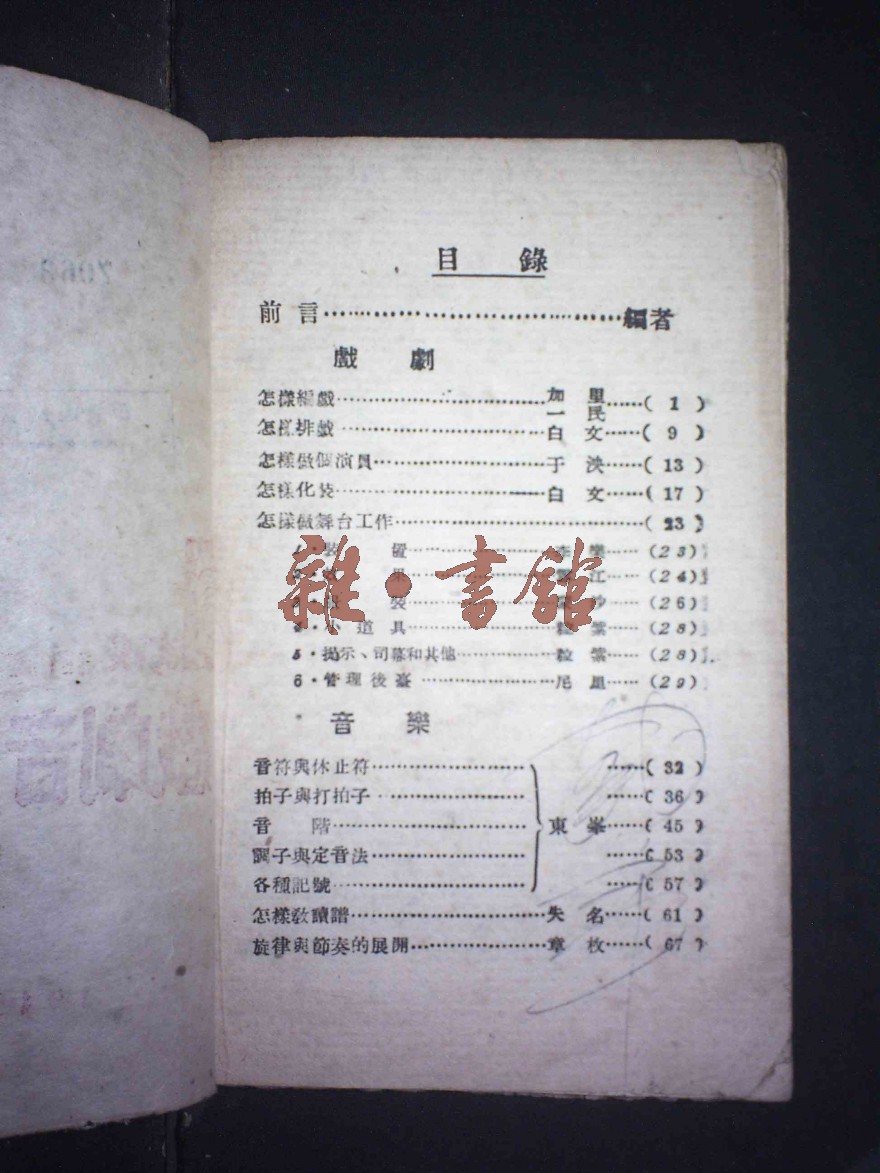 目錄
前言……編者
戲劇
怎樣編戲……加里 一民……( 1 )
怎樣排戲……白文……( 9 )
怎樣做個演員……于泱……( 13 )
怎樣化裝……白文……( 17 )
怎樣做舞台工作……( 23 )
裝置……(23)
果……江……(24)
裝……(26)
小道具……(28)
5·揭示、司幕和其他……粒紫……(28)
6·管理後臺……尼里……(29)
音樂
音符與休止符……( 32 )
拍子與打拍子……( 36 )
音階……東峯……( 45 )
調子與定音法……( 53 )
各種記號……( 57 )
怎樣教讀譜……失名……( 61 )
旋律與節奏的展開……章枚……( 67 )
雜·書館